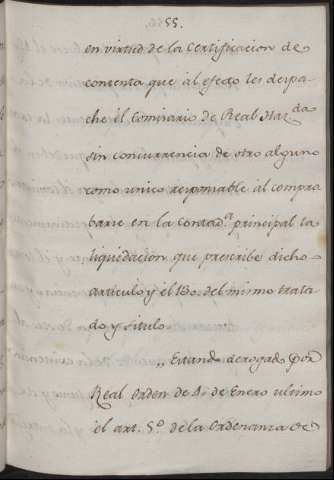 55.
en virtud de la Certificacion de
contenta que al efecto les despa-
che el Comisario de Real Haz.da
sin concurrencia de otro alguno
como unico responsable al compro
barse en la Contad.a principal la
liquidacion que prescribe dicho
articulo y el 130. del mismo trata
do y titulo.
,, Estando derogado por
Real Orden de 4,, de Enero ultimo
el art. 5.o de la Ordenanza de